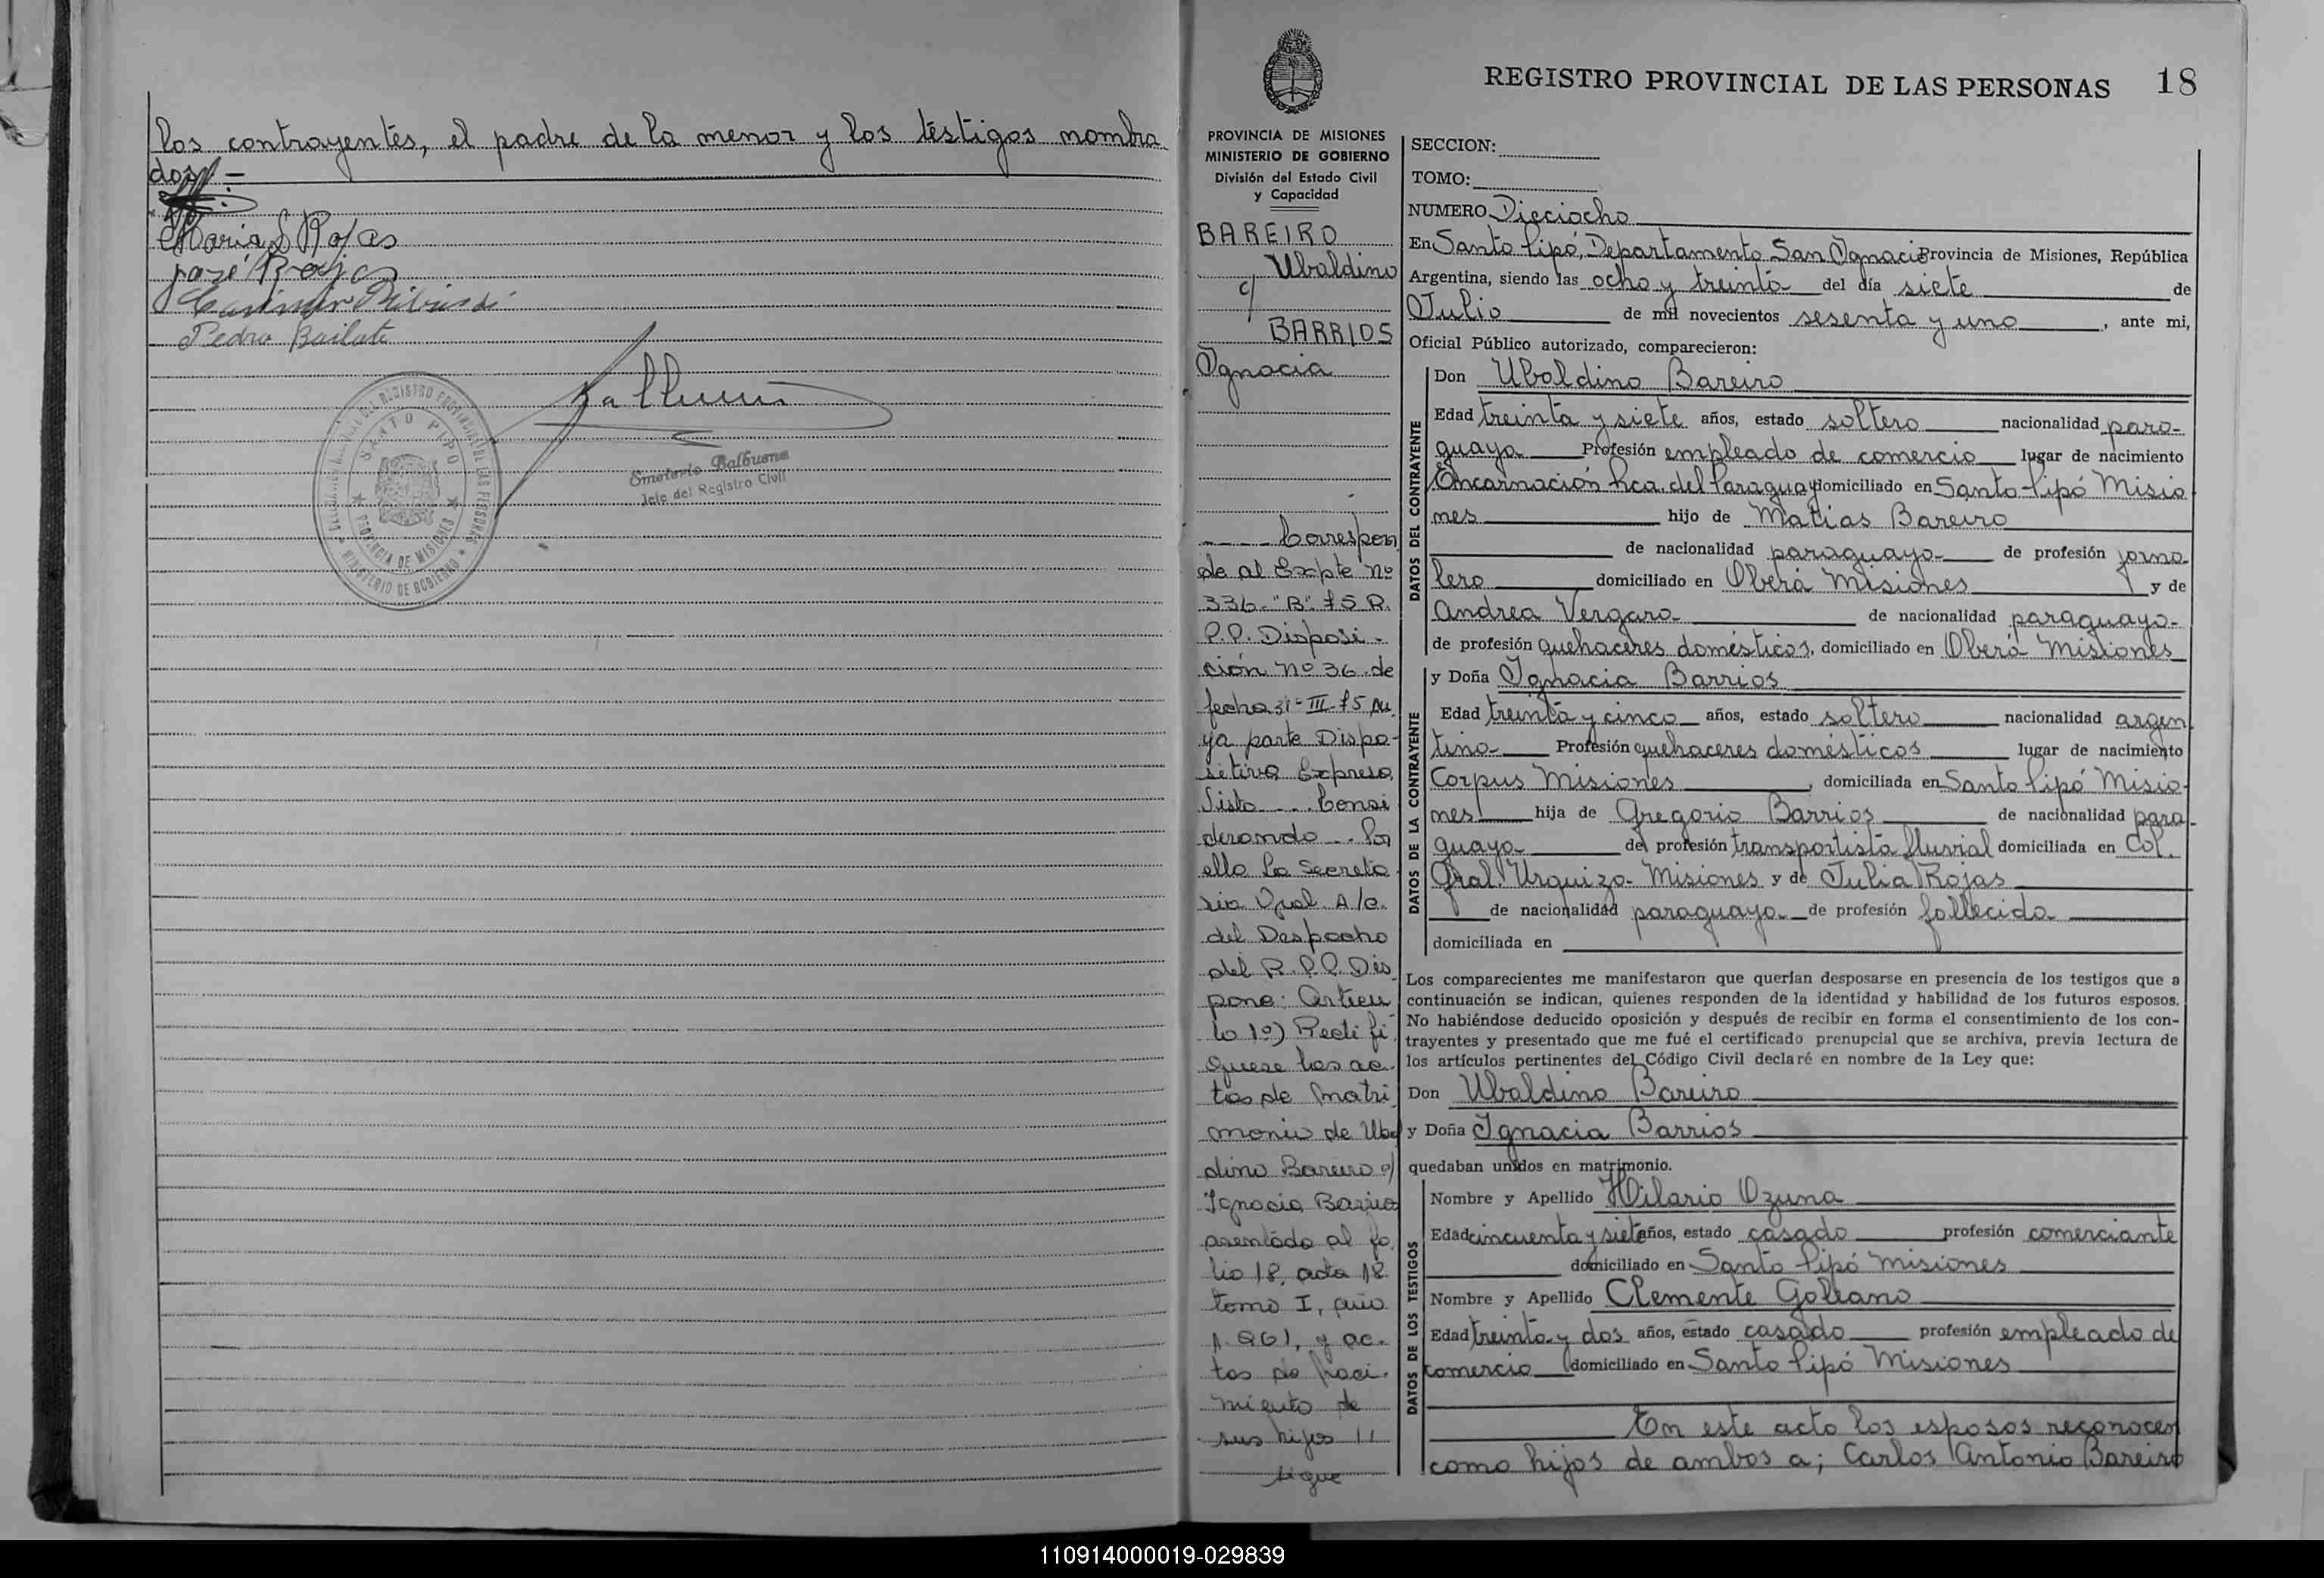 los contrayentes, el padre de la menor y los testigos nombra
dos.-
Maria S Rojas
José Rojas
Pedro Bailate
DEL REGISTRO PROVINCIAL DE LAS PERSONAS
SANTO PIPO
PROVINCIA DE MISIONES
MINISTERIO DE GOBIERNO
Emeterio Balbuena
Jefe del Registro Civil
REGISTRO PROVINCIAL DE LAS PERSONAS 18
PROVINCIA DE MISIONES
MINISTERIO DE GOBIERNO
División del Estado Civil
y Capacidad
BAREIRO
Ubaldino
c/
BARRIOS
Ygnacia
---- Correspon
de al Expte Nº
336-"B"-75 R.
P.P. Disposi-
ción Nº 36 de
fecha 31-III-75 cu
ya parte Dispo-
sitiva Expresa
Visto ... Consi
derando ... Por
ello la Secreta
ria Gral A/c.
del Despacho
del R.P.P. Dis
pone: Articu
lo 1º) Rectifi
quese las ac-
tas de Matri
monio de Ubal
dino Bareiro c/
Ignacia Barrios
asentada al fo
lio 18, acta 18
tomo I, año
1.961, y ac-
tas de Naci-
miento de
sus hijos //
sigue
SECCION:
TOMO:
NUMERO Dieciocho
En Santo Pipó, Departamento San Ygnacio Provincia de Misiones, República
Argentina, siendo las ocho y treinta del día siete de
Julio de mil novecientos sesenta y uno, ante mi,
Oficial Público autorizado, comparecieron:
DATOS DEL CONTRAYENTE
Don Ubaldino Bareiro
Edad treinta y siete años, estado soltero nacionalidad para-
guaya Profesión empleado de comercio lugar de nacimiento
Encarnación Rca. del Paraguay domiciliado en Santo Pipó Misio
nes hijo de Matias Bareiro
de nacionalidad paraguaya de profesión jorna-
lero domiciliado en Oberá Misiones y de
Andrea Vergara de nacionalidad paraguaya-
de profesión quehaceres domésticos, domiciliado en Oberá Misiones
DATOS DE LA CONTRAYENTE
y Doña Ygnacia Barrios
Edad treinta y cinco años, estado soltera nacionalidad argen
tina- Profesión quehaceres domésticos lugar de nacimiento
Corpus Misiones, domiciliada en Santo Pipó Misio-
nes hija de Gregorio Barrios de nacionalidad para-
guaya de profesión transportista fluvial domiciliada en Col.
Gral. Urquiza- Misiones y de Julia Rojas
de nacionalidad paraguaya de profesión fallecida
domiciliada en
Los comparecientes me manifestaron que querían desposarse en presencia de los testigos que a
continuación se indican, quienes responden de la identidad y habilidad de los futuros esposos.
No habiéndose deducido oposición y después de recibir en forma el consentimiento de los con-
trayentes y presentado que me fué el certificado prenupcial que se archiva, previa lectura de
los artículos pertinentes del Código Civil declaré en nombre de la Ley que:
Don Ubaldino Bareiro
y Doña Ignacia Barrios
quedaban unidos en matrimonio.
DATOS DE LOS TESTIGOS
Nombre y Apellido Hilario Ozuna
Edad cincuenta y siete años, estado casado profesión comerciante
domiciliado en Santo Pipó Misiones
Nombre y Apellido Clemente Goleano
Edad treinta y dos años, estado casado profesión empleado de
comercio domiciliado en Santo Pipó Misiones
En este acto los esposos reconocen
como hijos de ambos a; Carlos Antonio Bareiro
110914000019-029839